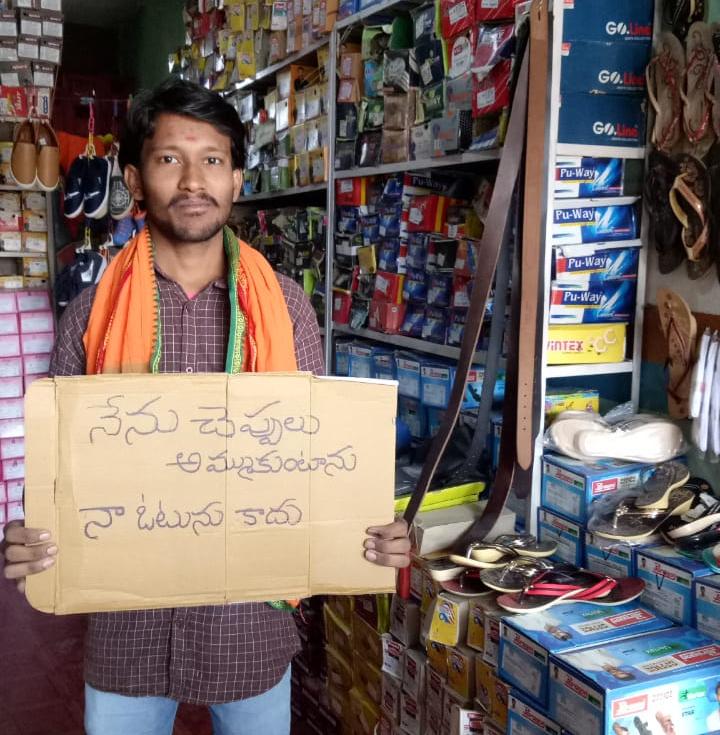 నేను చెప్పులు
అమ్ముకుంటాను
నా ఓటును కాదు
GO.Line
GO.Line
GO.Line
Pu-Way
Pu-Way
Pu-Way
Pu-Way
Pu-Way
VINTEX